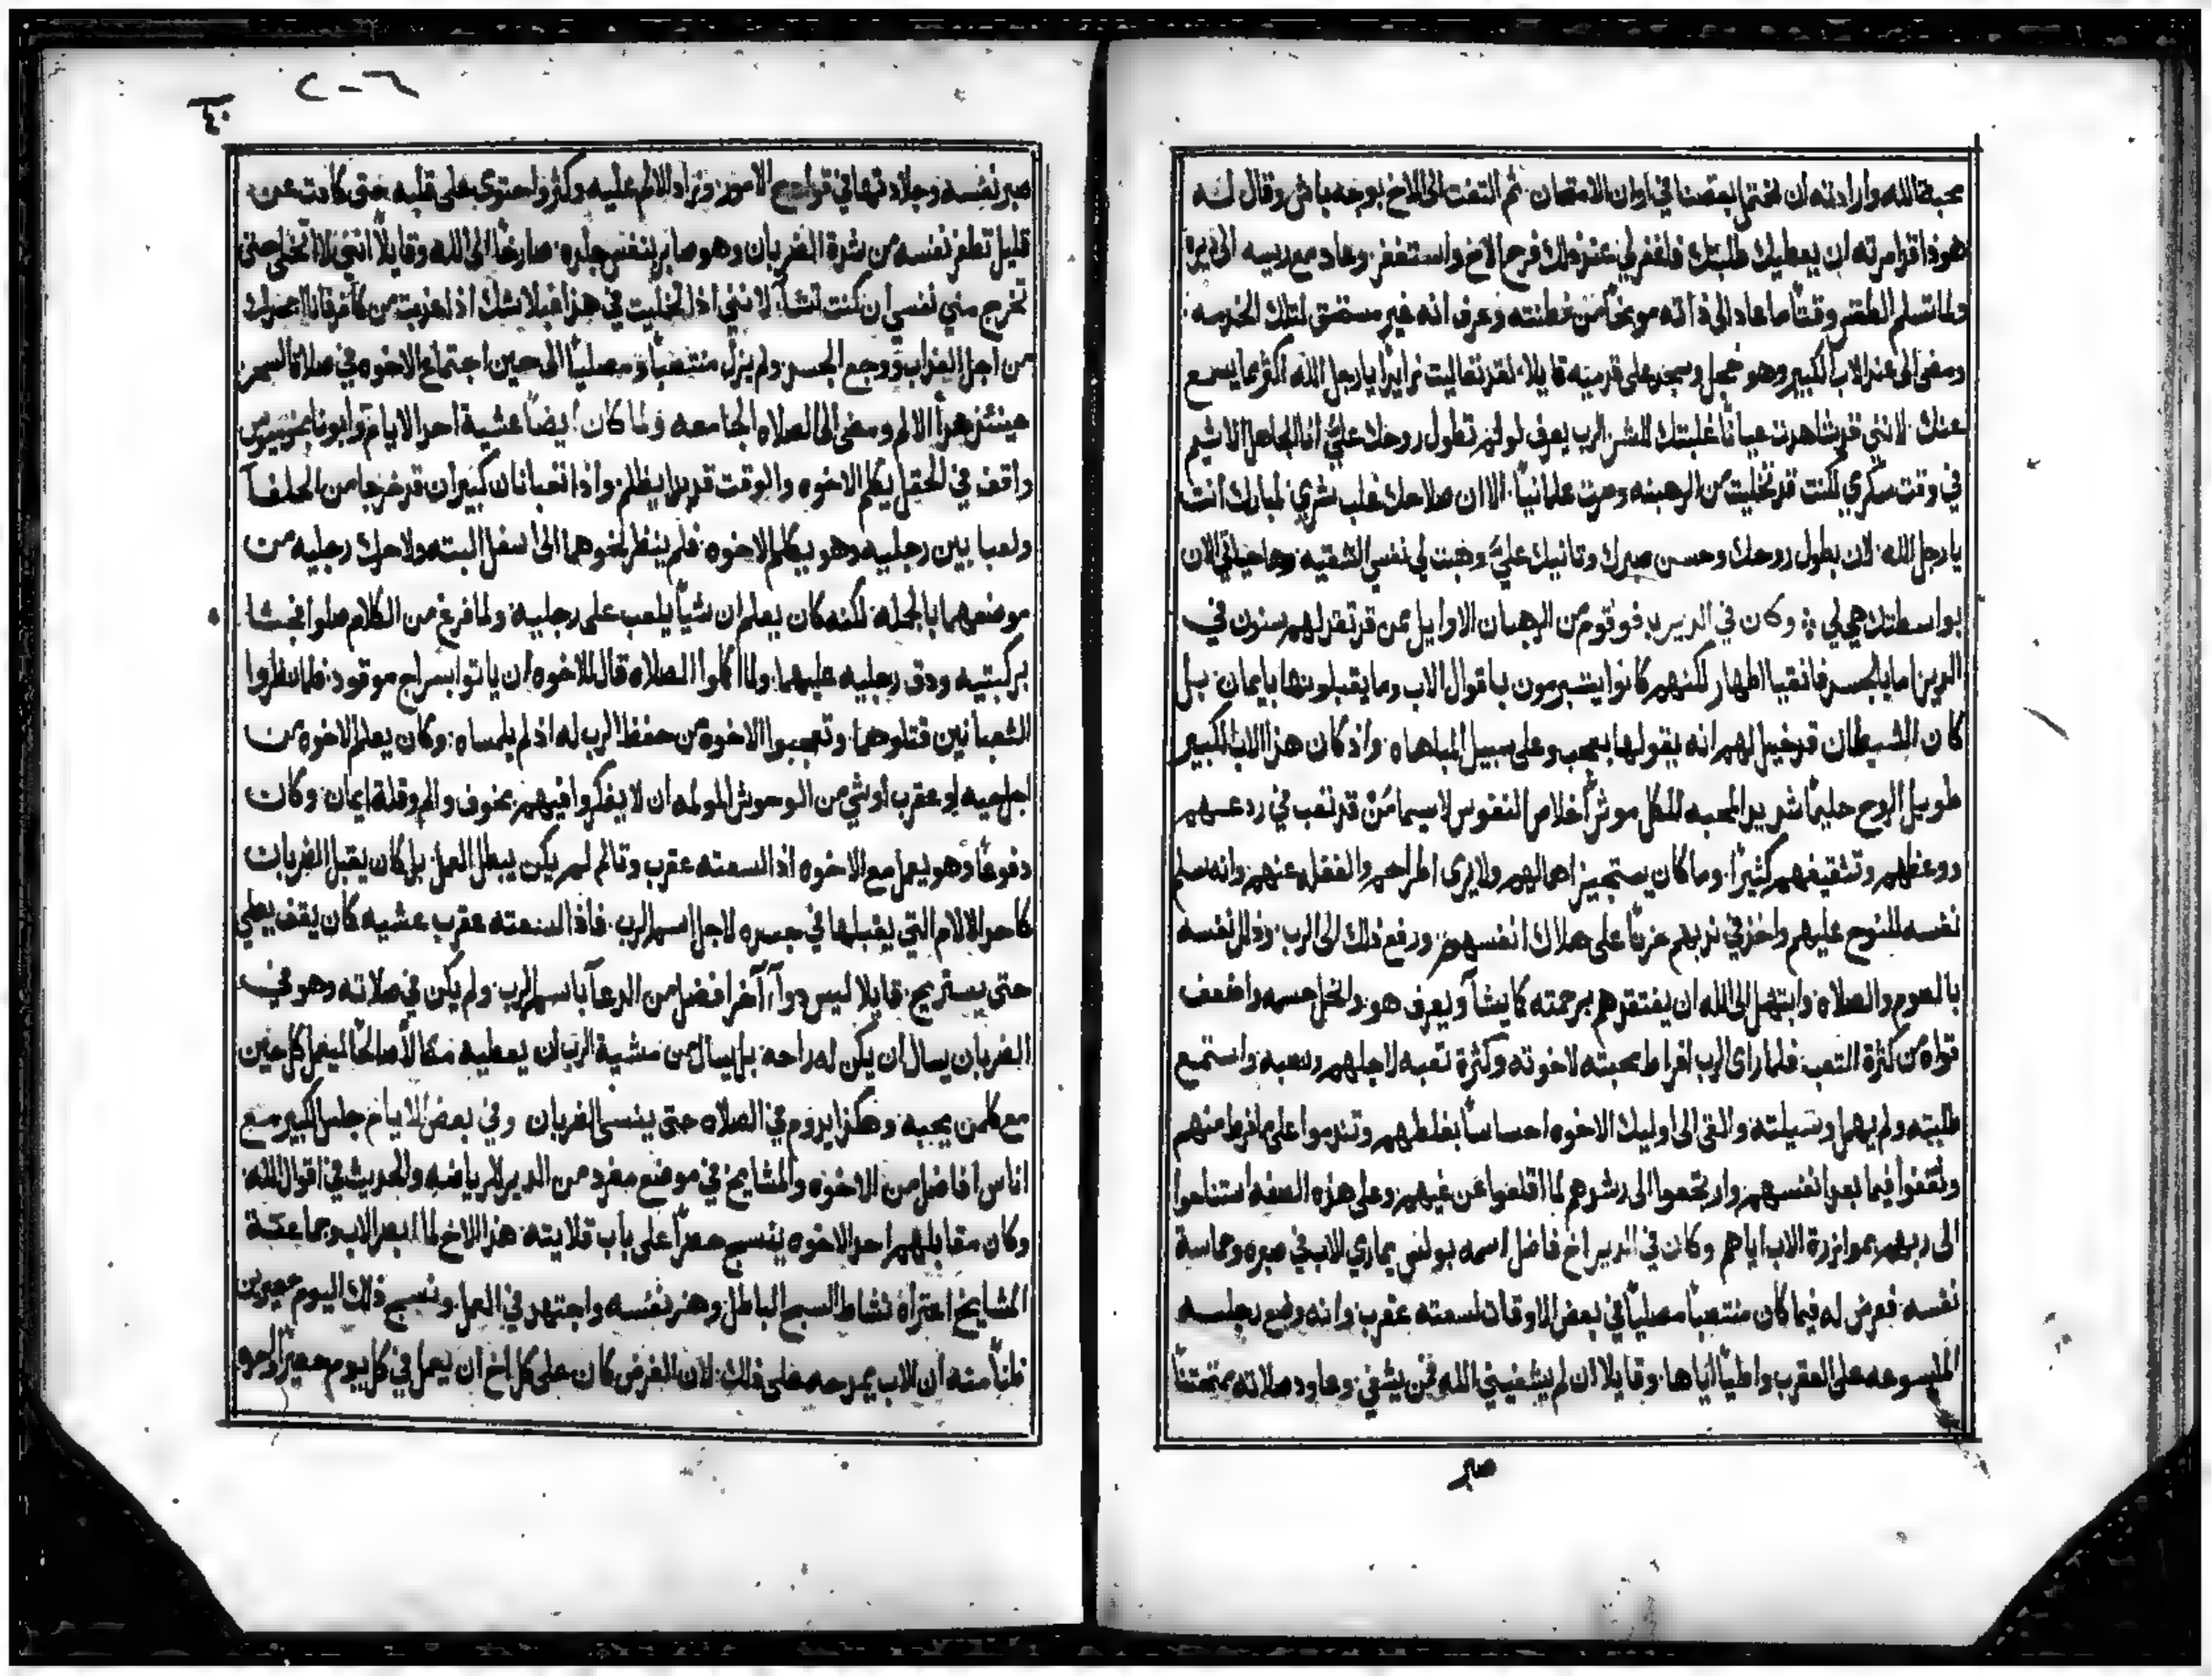 محبة الله وارادته ان نمتحن بعضنا في اوان الامتحان ثم التفت الى الاخ بوجه باش وقال له
هوذا قد امرته ان يعطيك طلبتك فاغفر لي عند ذلك فرح الاخ واستغفر وعاد مع رييسه الى ديره
ولما تسلم الطقس وقتًا ما عاد الى ذاته موبخًا من فطنته وعرف انه غير مستحق لتلك الخدمه
ومضى الى عند الاب الكبير وهو خجل وسجد على قدميه قايلا لقد تعاليت زايدًا يا رجل الله اكثر مما يسمع
عنك لانني قد شاهدت عيانًا غلبتك للشر الرب يعرف لو لم تطول روحك عليّ انا الجاهل الاثيم
في وقت سكري لكنت قد تخليت من الرهبنه وصرت علمانيًا الا ان صلاحك غلب شري فمبارك انت
يا رجل الله لان بطول روحك وحسن صبرك وتانيك عليّ وهبت لي نفسي الشقيه وها حياتي الان
بواسطتك هي لي وكان في الدير بفوقوم من الرهبان الاوايل ممن قد تقدم لهم سنون في
الدير اما بالجسد فانقيا اطهار لكنهم كانوا يتبرمون باقوال الاب وما يقبلونها بايمان بل
كان الشيطان قد خيل لهم انه يقولها بعجب وعلى سبيل المباهاه واذ كان هذا الاب الكبير
طويل الروح حليمًا شديد المحبه للكل موثرًا خلاص النفوس لاسيما من قد تعب في ردعهم
ووعظهم وتثقيفهم كثيرًا وما كان يستجيز اهمالهم ولا يرى اطراحهم والغفله عنهم وانه سلم
نفسه للنوح عليهم واخذ في ندبهم حزنًا على هلاك انفسهم ورفع ذلك الى الرب وذلل نفسه
بالصوم والصلاه وابتهل الى الله ان يفتقدهم برحمته كما يشا ويعرف هو وانحل جسمه واضعف
قواه من كثرة التعب فلما راى الرب افراط محبته لاخوته وكثرة تعبه لاجلهم رحمه واستمع
طلبته ولم يهمل وسيلته والقى الى اوليك الاخوه احساسًا بغلطهم وتندموا على ما فرط منهم
وثقفوا فيما بعد انفسهم وارتجعوا الى رشدهم لما اقلعوا عن غيهم وعلى هذه الصفه استناحوا
الى ربهم بموازرة الاب اياهم وكان في الدير اخ فاضل اسمه بولس يماري الاب في صبره وحماسة
نفسه فعرض له فيما كان منتصبًا مصليًا في بعض الاوقات لسعته عقرب وانه وضع رجله
الملسوعه على العقرب واطيًا اياها وقايلا ان لم يشفيني الله فمن يشفي وعاود صلاته ممتحنًا
صبر
صبر نفسه وجلادتها في تواجع الامور وزاد الالم عليه وكثر واحتوى على قلبه حتى كادت عن
قليل تطفر نفسه من شدة الضربان وهو صابر بنفس جلده صارخًا الى الله وقايلًا انني لا اتخلى حتى
تخرج مني نفسي ان كنت تشآ لانني اذا تخليت في هذا فبلا شك اذا هربت من كافر قد انحرك
من اجل العذاب ووجع الجسد ولم يزل منتصبًا ومصليًا الى حين اجتماع الاخوه في صلاة السحر
حينئذ هدا الالم ومضى الى الصلاه الجامعه ولما كان ايضًا عشية احد الايام وابونا بخوميوس
واقف في الحقل يكلم الاخوه والوقت قد بدا يظلم واذا ثعبانان كبيران قد خرجا من الحلفآ
ولعبا بين رجليه وهو يكلم الاخوه فلم ينظر نحوهما الى اسفل البته ولا حرك رجليه من
موضعهما بالجمله لكنه كان يعلم ان شيًا يلعب على رجليه ولما فرغ من الكلام صلوا فجثا
بركبتيه ودق رجليه عليهما ولما اكملوا الصلاه قال للاخوه ان ياتوا بسراج موقود فلما نظروا
الثعبانين قتلوهما وتعجبوا الاخوه من حفظ الرب له اذ لم يلمساه وكان يعلم الاخوه من
اجل حيه او عقرب او شي من الوحوش المولمه ان لا يفكروا فيهم بخوف والم وقلة ايمان وكان
دفوعًا وهو يعمل مع الاخوه اذا لسعته عقرب وتالم لم يكن يبطل العمل بل كان يقبل الضربات
كاحد الالام التي يقبلها في جسده لاجل اسم الرب فاذا لسعته عقرب عشيه كان يقف يصلي
حتى يستريح قايلا ليس دوآء آخر افضل من الدعآ باسم الرب ولم يكن في صلاته وهو في
الضربان يسال ان يكن له راحه بل يسال من مشية الرب ان يعطيه مقالًا صالحًا ليفعل كل حين
مع كلمن يحبه وهكذا يدوم في الصلاه حتى ينسى الضربان وفي بعض الايام جلس الكبير مع
اناس افاضل من الاخوه والمشايخ في موضع مفرد من الدير للرياضه والحديث في اقوال الله
وكان مقابلهم احد الاخوه ينسج حصرًا على باب قلايته هذا الاخ لما ابصر الاب وجماعة
المشايخ اعتراه نشاط السبح الباطل وهز نفسه واجتهد في العمل ونسج ذلك اليوم حصيرين
ظنًا منه ان الاب يمدحه على ذلك لان الفرض كان على كل اخ ان يعمل في كل يوم حصيرًا وهو